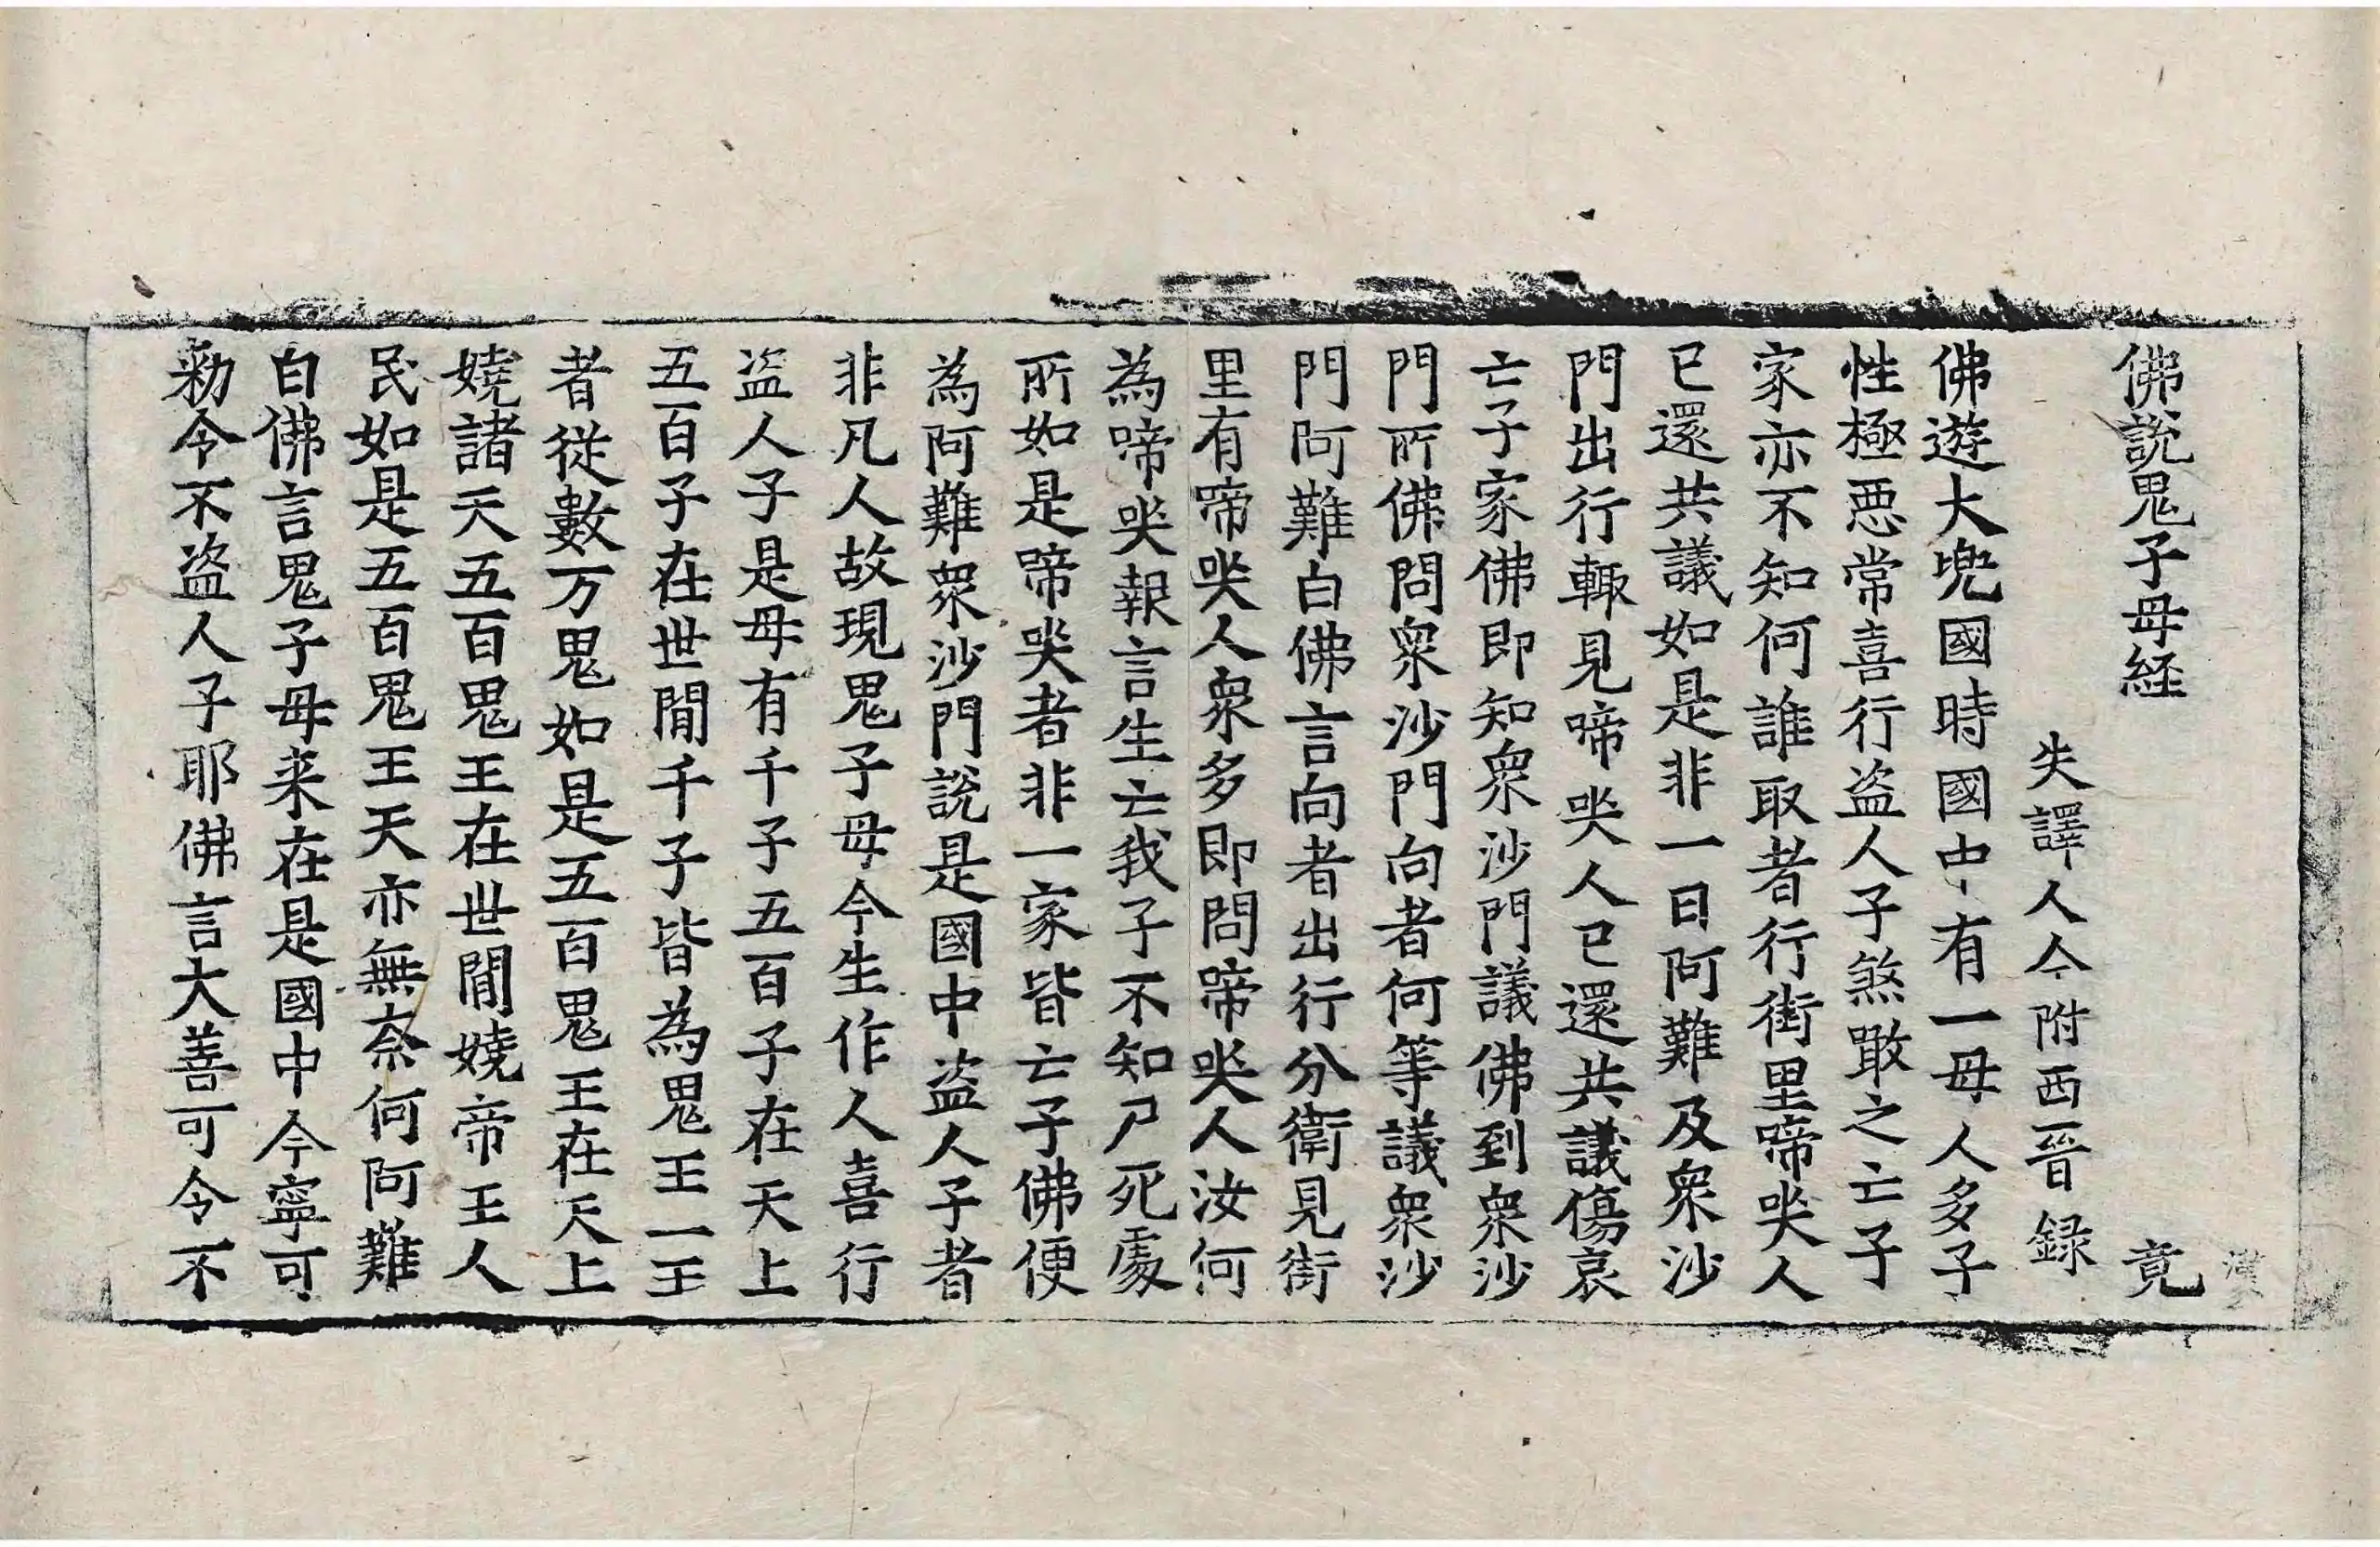 佛說鬼子母経 竟
失譯人今附西晉録
佛遊大兜國時國中有一母人多子
性極惡常喜行盗人子煞噉之亡子
家亦不知何誰取者行街里啼哭人
已還共議如是非一日阿難及衆沙
門出行輙見啼哭人已還共議傷哀
亡子家佛即知衆沙門議佛到衆沙
門所佛問衆沙門向者何等議衆沙
門阿難白佛言向者出行分衛見街
里有啼哭人衆多即問啼哭人汝何
為啼哭報言生亡我子不知尸死處
所如是啼哭者非一家皆亡子佛便
為阿難衆沙門說是國中盗人子者
非凡人故現鬼子母今生作人喜行
盗人子是母有千子五百子在天上
五百子在世間千子皆為鬼王一王
者從數万鬼如是五百鬼王在天上
嬈諸天五百鬼王在世間嬈帝王人
民如是五百鬼王天亦無奈何阿難
白佛言鬼子母来在是國中今寧可
勑令不盗人子耶佛言大善可令不